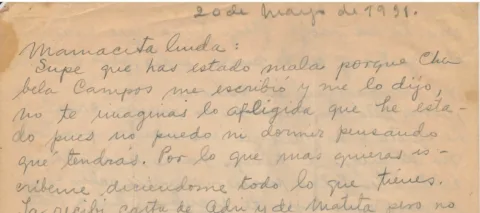 20 de Mayo de 1931.
Mamacita linda:
Supe que has estado mala porque Cha
bela Campos me escribió y me lo dijo,
no te imaginas lo afligida que he esta-
do pues no puedo ni dormir pensando
qué tendrás. Por lo que mas quieras es-
cribeme diciendome todo lo que tienes.
Ya recibí carta de Adri y de Matita pero no